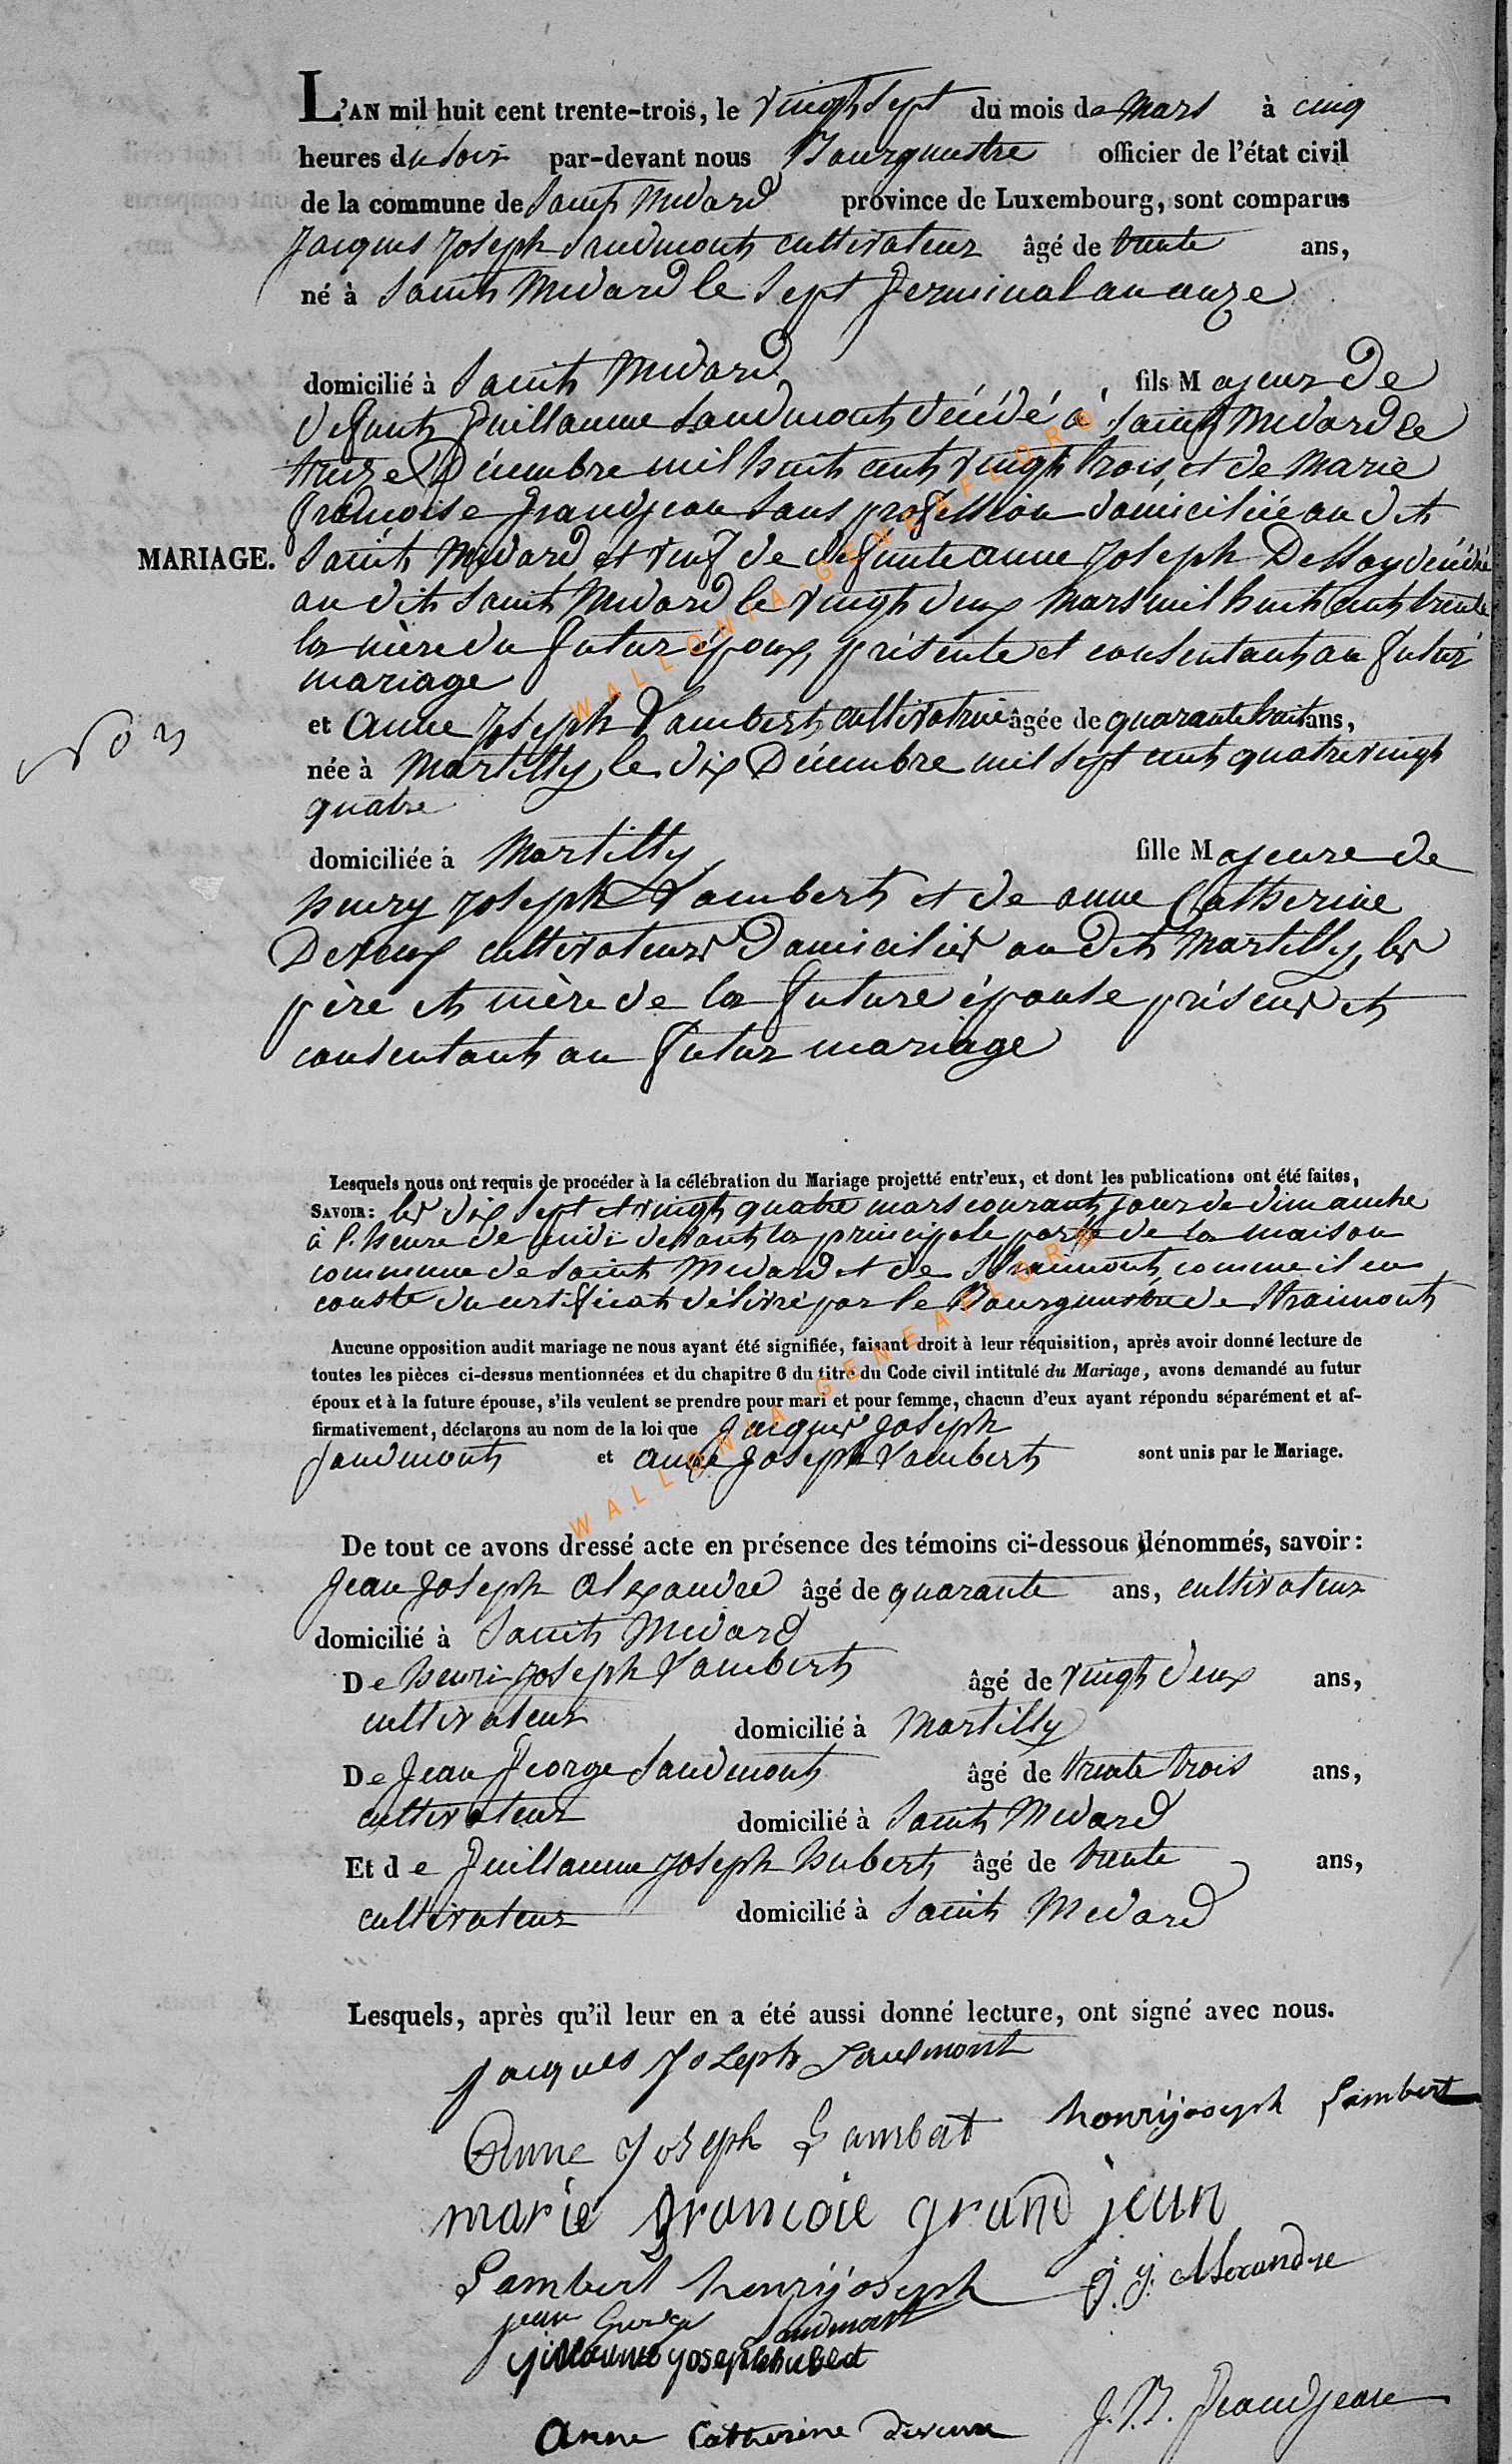 L'AN mil huit cent trente-trois, le vingt sept du mois de Mars à cinq
heures du soir par-devant nous Bourguestre officier de l'état civil
de la commune de Saint Médard province de Luxembourg, sont comparus
Jacques Joseph Saudmont cultivateur âgé de trente ans,
né à Saint Médard le sept Germinal an onze
domicilié à Saint Médard fils Majeur de
défunt Guillaume Saudmont décédé à Saint Médard le
treize Décembre mil huit cent vingt trois, et de Marie
françoise Grandjean sans profession domiciliée au dit
MARIAGE. Saint Médard et veuf de défunte anne Joseph Dessoy décédé
au dit Saint Médard le vingt deux Mars mil huit cent trente
la mère du futur époux, présente et consentant au futur
mariage
et Anne Joseph Lambert cultivatrice âgée de quarante huit ans,
née à Martilly, le dix Décembre mil sept cent quatrevingt
quatre
domiciliée à Martilly, fille Majeure de
henry Joseph Lambert et de anne Catherine
Deveux cultivateurs Domiciliés au Dit Martilly, les
père et mère de la future épouse présens et
consentant au futur mariage
Lesquels nous ont requis de procéder à la célébration du Mariage projetté entr'eux, et dont les publications ont été faites,
SAVOIR: les dix sept et vingt quatre mars courant jour de dimanche
à l'heure de midi devant la principale porte de la maison
commune de Saint Médard et de Straimont comme il en
conste du certificat délivré par le Bourguestre de Straimont
Aucune opposition audit mariage ne nous ayant été signifiée, faisant droit à leur réquisition, après avoir donné lecture de
toutes les pièces ci-dessus mentionnées et du chapitre 6 du titre du Code civil intitulé du Mariage, avons demandé au futur
époux et à la future épouse, s'ils veulent se prendre pour mari et pour femme, chacun d'eux ayant répondu séparément et af-
firmativement, déclarons au nom de la loi que Jacques Joseph
Saudmont et anne Joseph Lambert sont unis par le Mariage.
De tout ce avons dressé acte en présence des témoins ci-dessous dénommés, savoir:
Jean Joseph Alexandre âgé de quarante ans, cultivateur
domicilié à Saint Médard
De henri Joseph Lambert âgé de vingt deux ans,
cultivateur domicilié à Martilly
De Jean George Saudmont âgé de trente trois ans,
cultivateur domicilié à Saint Médard
Et de Guillaume Joseph hubert âgé de trente ans,
cultivateur domicilié à Saint Médard
Lesquels, après qu'il leur en a été aussi donné lecture, ont signé avec nous.
Jacques Joseph Saudmont
Anne Joseph Lambert henrijoseph Lambert
marie francoie grand jean
Lambert henrijoseph J. J. Alexandre
jean George Saudmont
guillaume joseph hubert
anne Catherine Deveux J. B. Grandjean
WALLONIA-GENEAFLORE
WALLONIA-GENEAFLORE